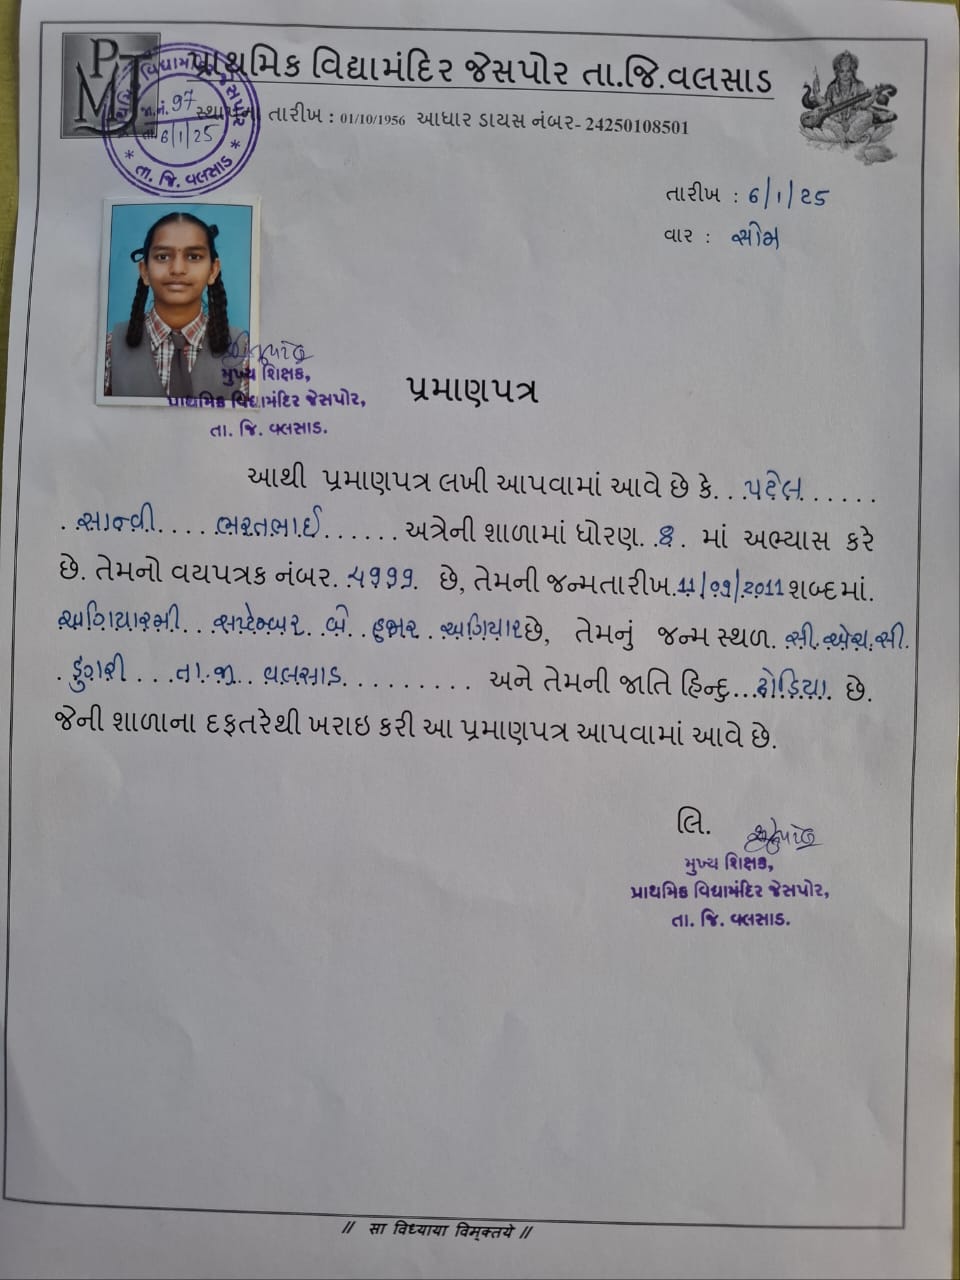 PMJ
પ્રાથમિક વિદ્યામંદિર જેસપોર તા.જિ.વલસાડ
સ્થાપના તારીખ : 01/10/1956 આધાર ડાયસ નંબર- 24250108501
જા.નં. 97
તા. 6/1/25
* તા. જિ. વલસાડ *
તારીખ : 6/1/25
વાર : સોમ
મુખ્ય શિક્ષક,
પ્રાથમિક વિદ્યામંદિર જેસપોર,
તા. જિ. વલસાડ.
પ્રમાણપત્ર
આથી પ્રમાણપત્ર લખી આપવામાં આવે છે કે. . .પટેલ. . . . . .
. સાન્વી. . . . . ભરતભાઈ. . . . . . અત્રેની શાળામાં ધોરણ. .8. માં અભ્યાસ કરે
છે. તેમનો વયપત્રક નંબર. .5999. છે, તેમની જન્મતારીખ.11/09/2011 શબ્દમાં.
અગિયારમી. . . સપ્ટેમ્બર. . બે. . હજાર. . અગિયાર છે, તેમનું જન્મ સ્થળ. સી.એચ.સી.
. ડુંગરી. . . .તા.જી. . વલસાડ. . . . . . . . . અને તેમની જાતિ હિન્દુ. . .ઢોડિયા છે.
જેની શાળાના દફતરેથી ખરાઇ કરી આ પ્રમાણપત્ર આપવામાં આવે છે.
લિ.
મુખ્ય શિક્ષક,
પ્રાથમિક વિદ્યામંદિર જેસપોર,
તા. જિ. વલસાડ.
// સા વિધ્યાયા વિમૃક્તયે //